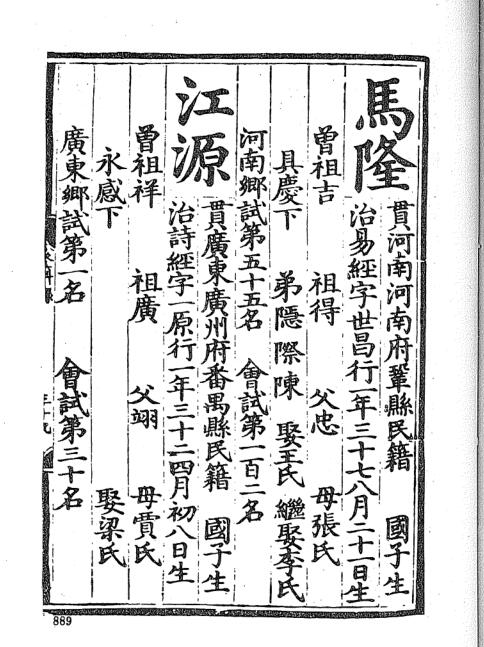 馬隆
貫河南河南府鞏縣民籍 國子生
治易經字世昌行一年三十七八月二十一日生
曾祖吉 祖得 父忠 母張氏
具慶下 弟隱際陳 娶王氏 繼娶李氏
河南鄉試第五十五名 會試第一百二名
江源
貫廣東廣州府番禺縣民籍 國子生
治詩經字一原行一年三十二四月初八日生
曾祖祥 祖廣 父翊 母賈氏
永感下 娶梁氏
廣東鄉試第一名 會試第三十名
889